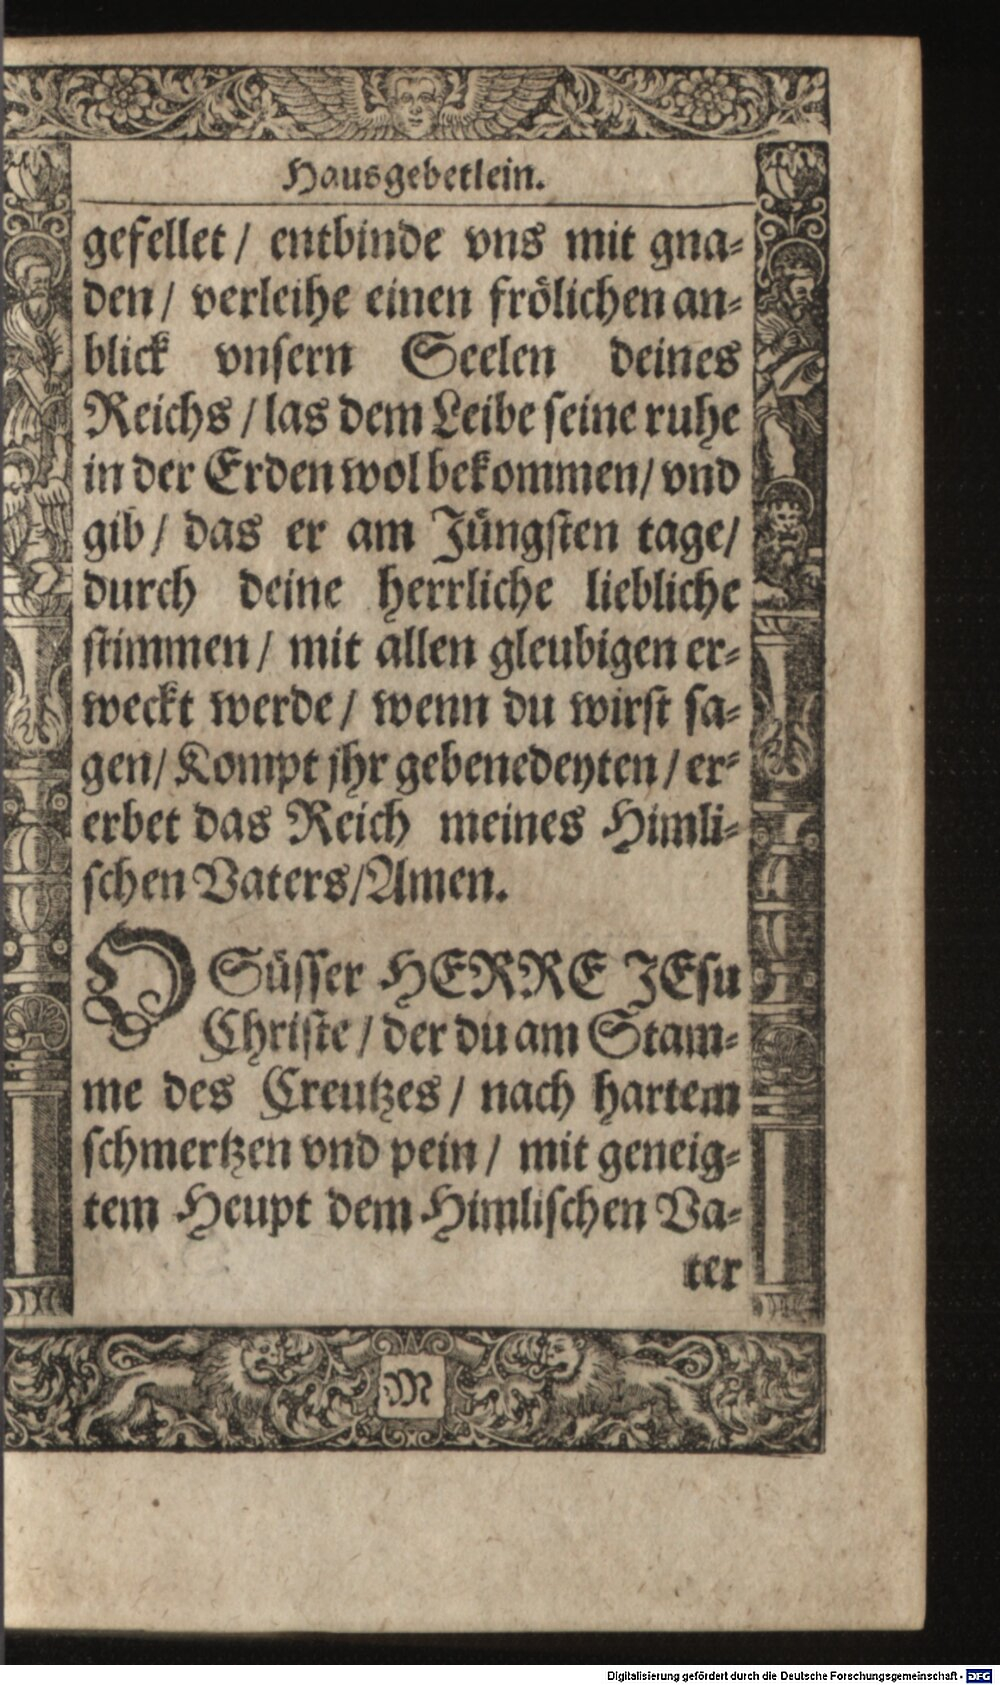 Hausgebetlein.
gefellet / entbinde vns mit gna-
den / verleihe einen frölichen an-
blick vnsern Seelen deines
Reichs / las dem Leibe seine ruhe
in der Erden wol bekommen / vnd
gib / das er am Jüngsten tage /
durch deine herrliche liebliche
stimmen / mit allen gleubigen er-
weckt werde / wenn du wirst sa-
gen / Kompt jhr gebenedeyten / er-
erbet das Reich meines Himli-
schen Vaters / Amen.
O Süsser HERRE JEsu
Christe / der du am Stam-
me des Creutzes / nach hartem
schmertzen vnd pein / mit geneig-
tem Heupt dem Himlischen Va-
ter
M
Digitalisierung gefördert durch die Deutsche Forschungsgemeinschaft - DFG